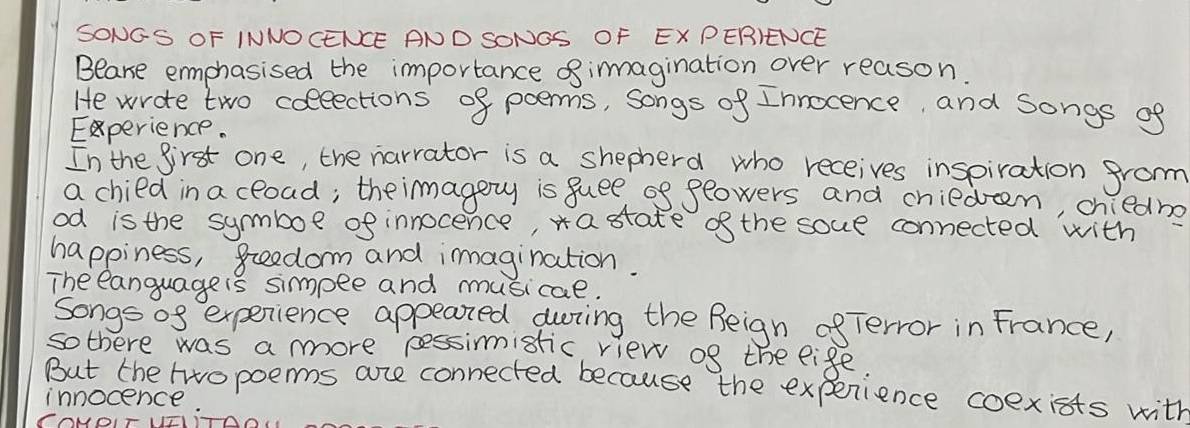 SONGS OF INNOCENCE AND SONGS OF EXPERIENCE
Blake emphasised the importance of immagination over reason.
He wrote two collections of poems, Songs of Innocence, and Songs of
Experience.
In the first one, the narrator is a shepherd who receives inspiration from
a child in a cloud; the immagery is full of flowers and children, childho
od is the symbol of innocence, *a state of the soul connected with
happiness, freedom and immagination.
The language is simple and musical.
Songs of experience appeared during the Reign of Terror in France,
so there was a more pessimistic view of the life.
But the two poems are connected because the experience coexists with
innocence.